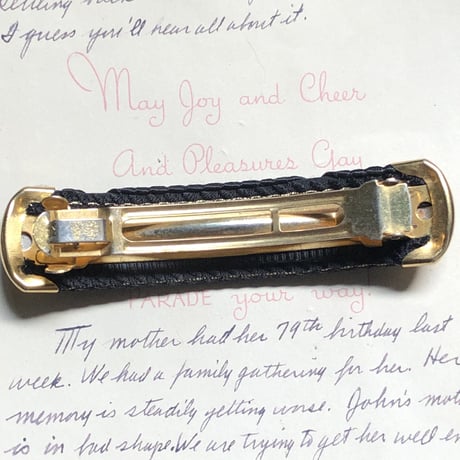 I guess you'll hear all about it.
May Joy and Cheer
And Pleasures Gay
PARADE your way.
My mother had her 79th birthday last
week. We had a family gathering for her. Her
memory is steadily getting worse. John's
is in bad shape. We are trying to get her well